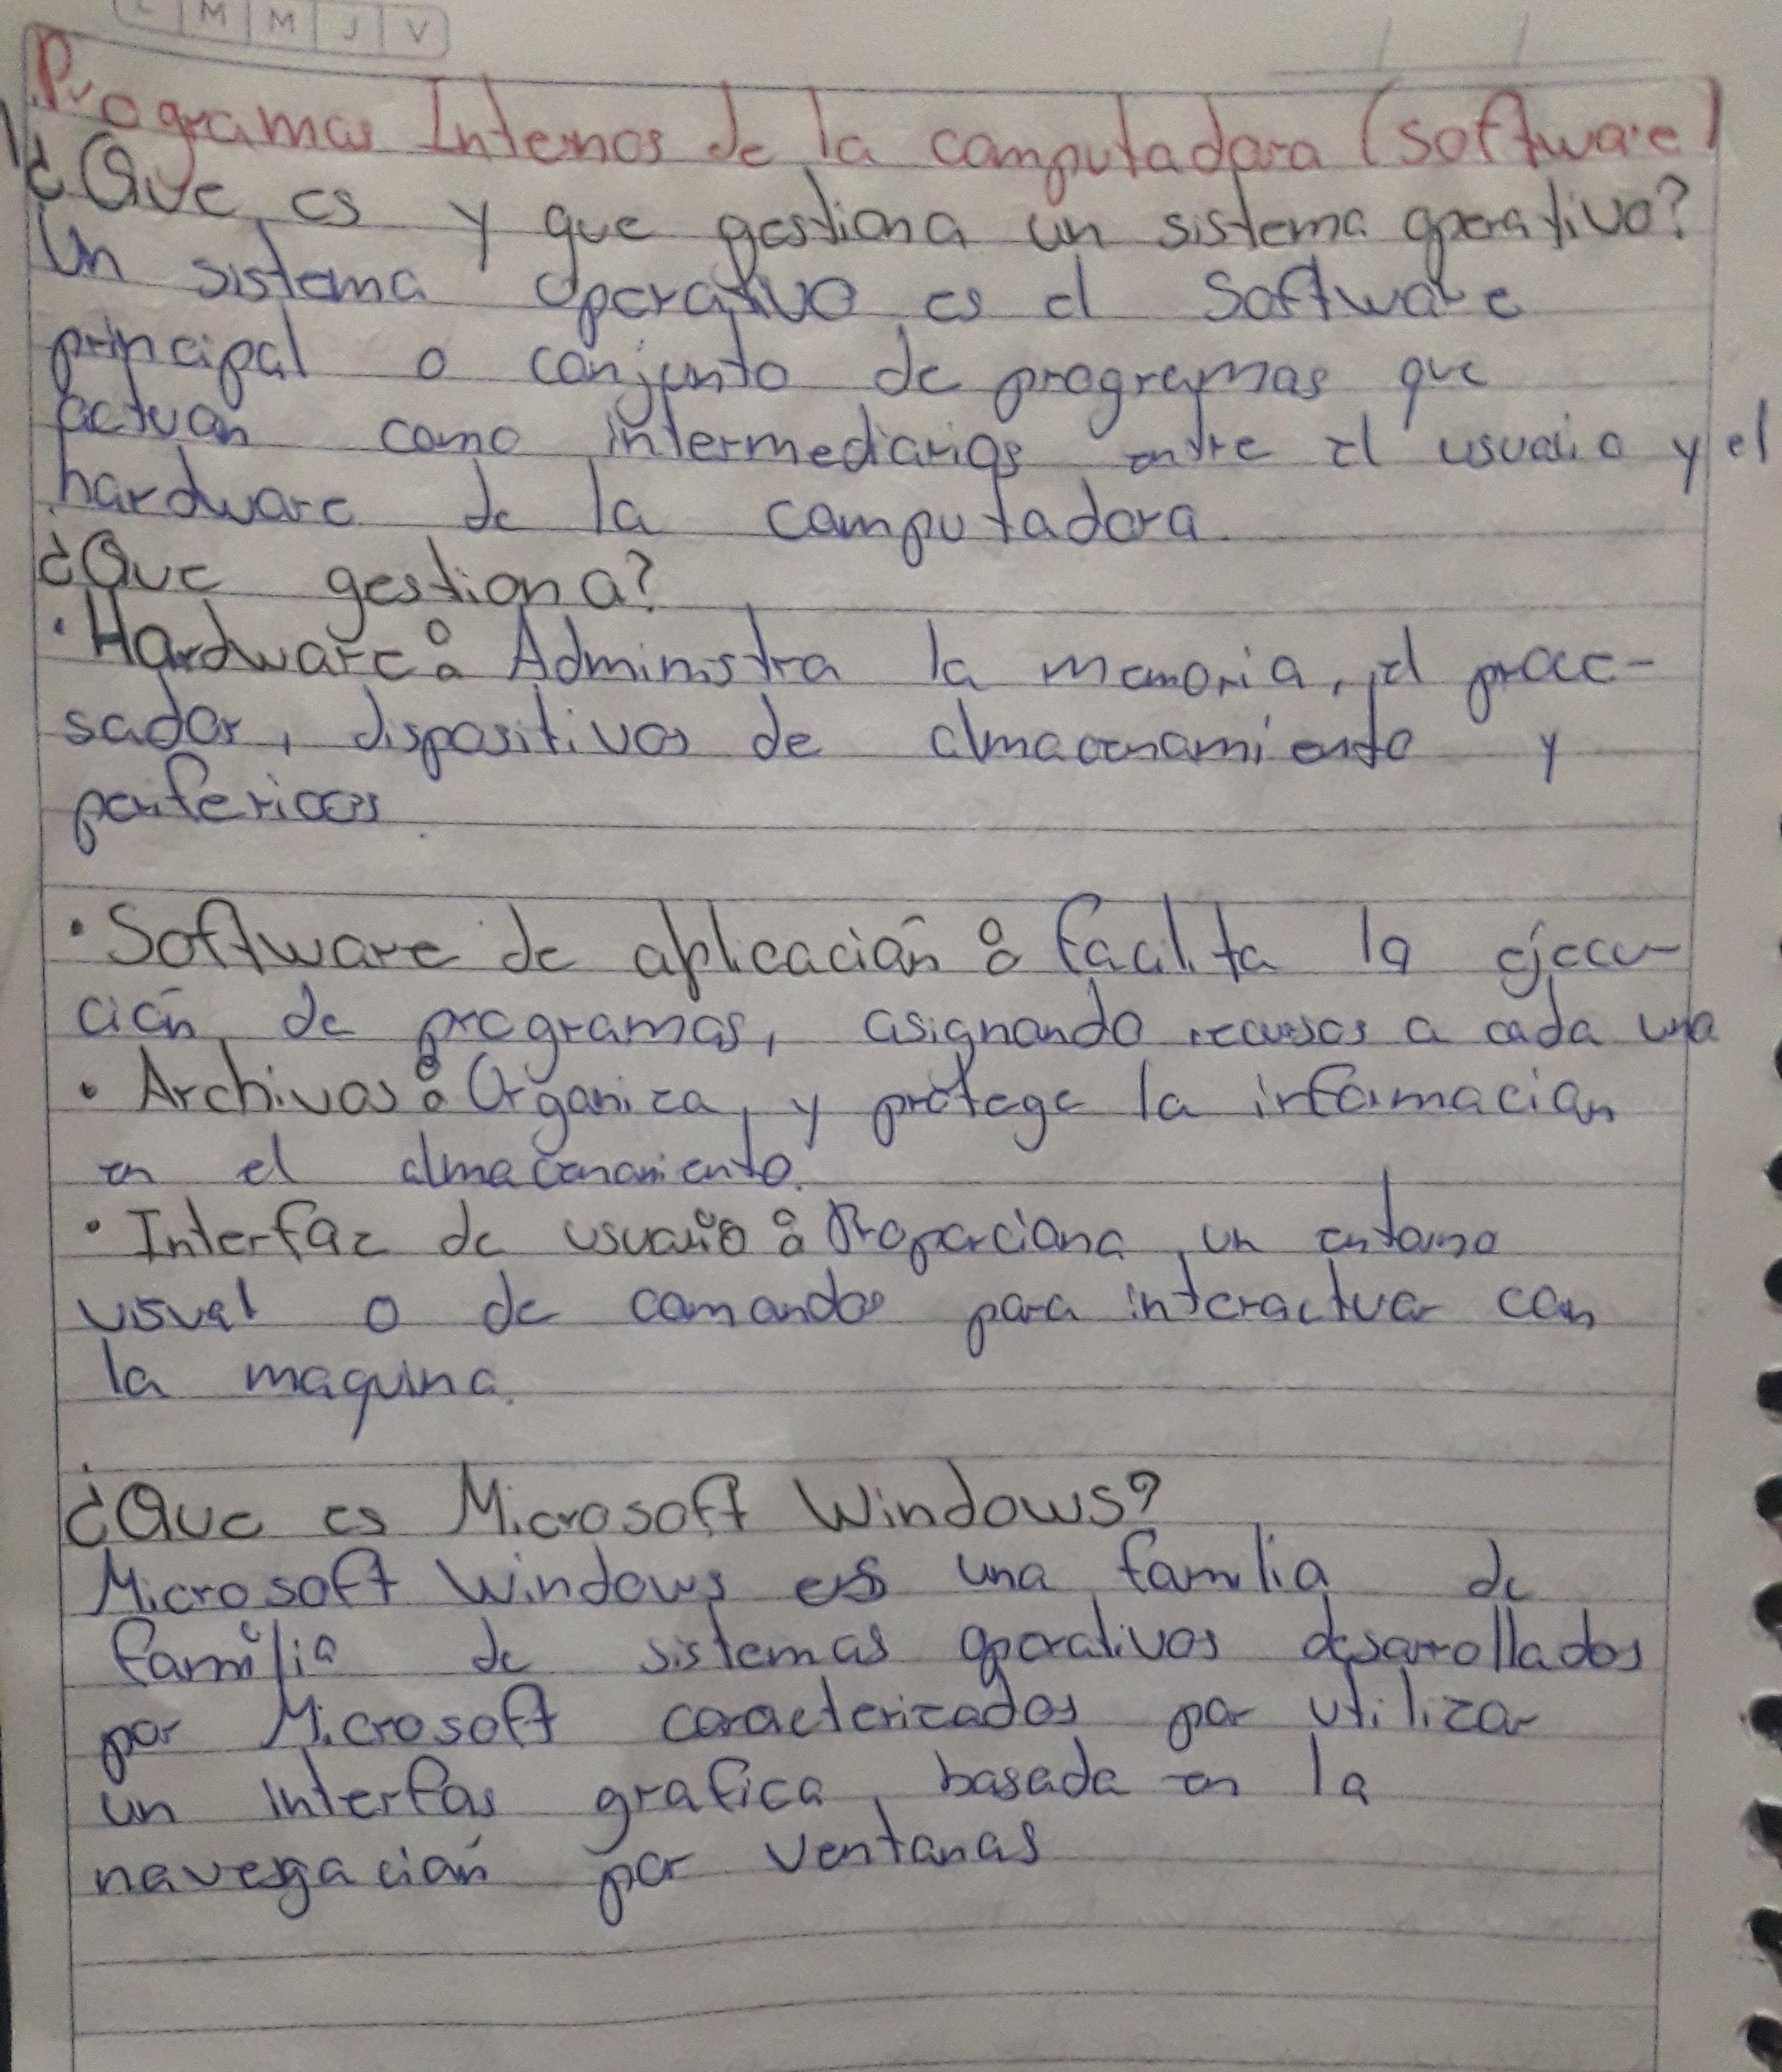 L M M J V
Programas Internos de la computadora (software)
1¿Que es y que gestiona un sistema operativo?
Un sistema operativo es el software
principal o conjunto de programas que
actuan como intermediarios entre el usuario y el
hardware de la computadora
¿Que gestiona?
· Hardware: Administra la memoria, el proce-
sador, dispositivos de almacenamiento y
perifericos
· Software de aplicación: facilita la ejecu-
ción de programas, asignando recursos a cada una
· Archivos: Organiza, y protege la informacion
en el almacenamiento.
· Interfaz de usuario: Proporciona un entorno
visual o de comandos para interactuar con
la maquina.
¿Que es Microsoft Windows?
Microsoft Windows es una familia de
familia de sistemas operativos desarrollados
por Microsoft caracterizados por utilizar
un interfas grafica, basada en la
navegación por ventanas